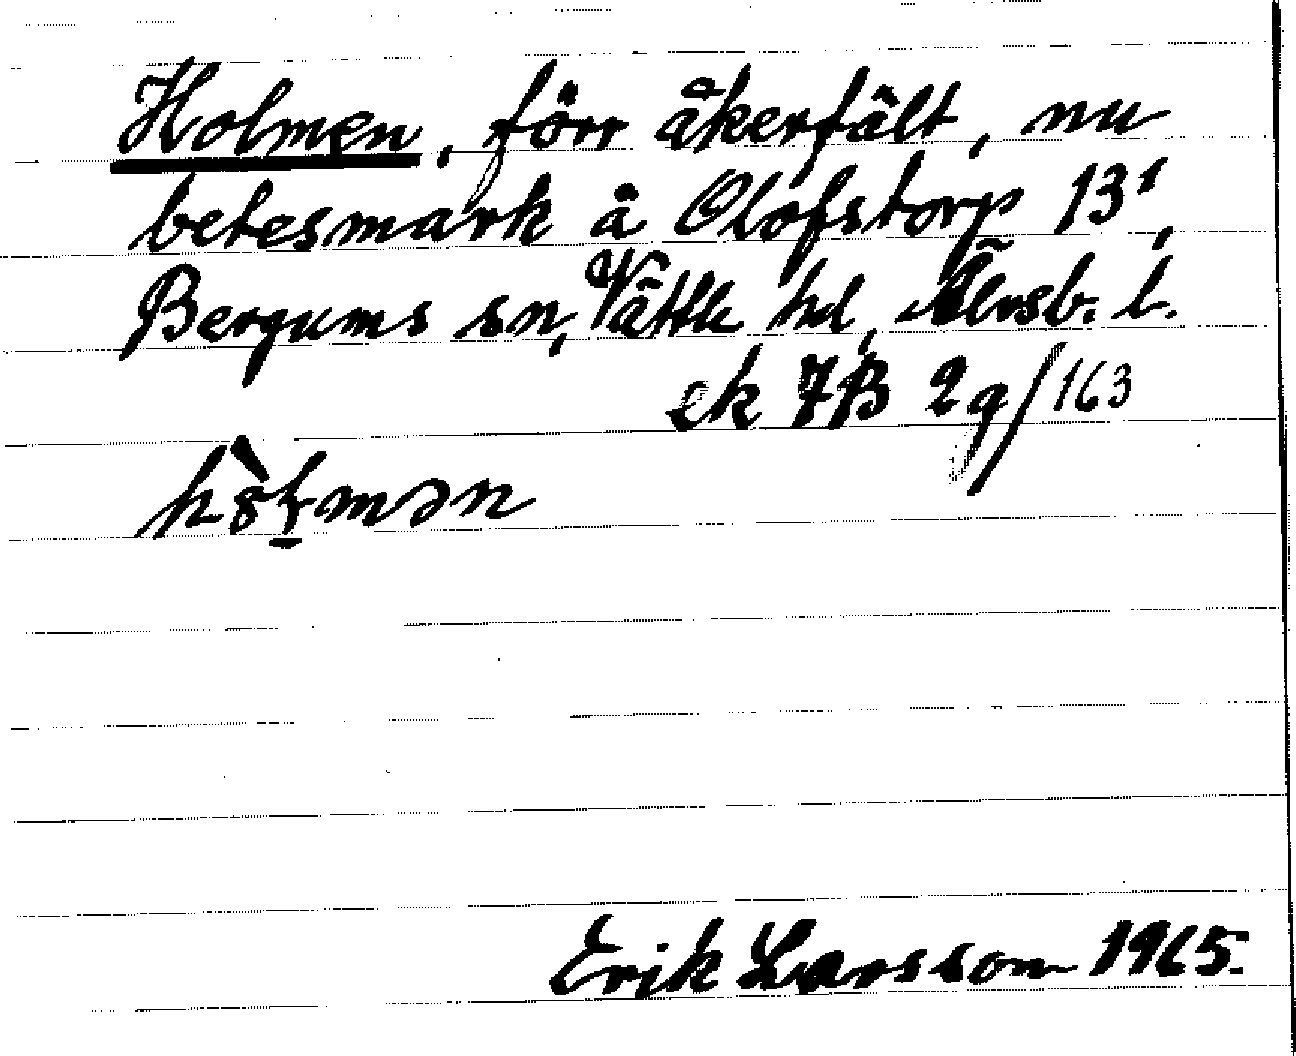 Holmen, förr åkerfält, nu
betesmark å Olofstorp 13¹,
Bergums sn, Vättle hd, Älvsb. l.
ek 7B 2g/163
Erik Larsson 1965.